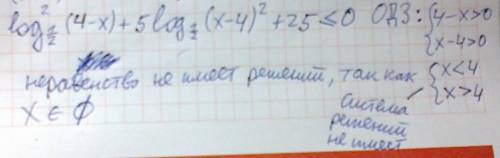 log²_{1/2} (4-x) + 5 log_{1/2} (x-4)² + 25 ≤ 0   ОДЗ: {4-x>0
{x-4>0
неравенство не имеет решений, так как {x<4
{x>4
x ∈ ∅
система
решений
не имеет